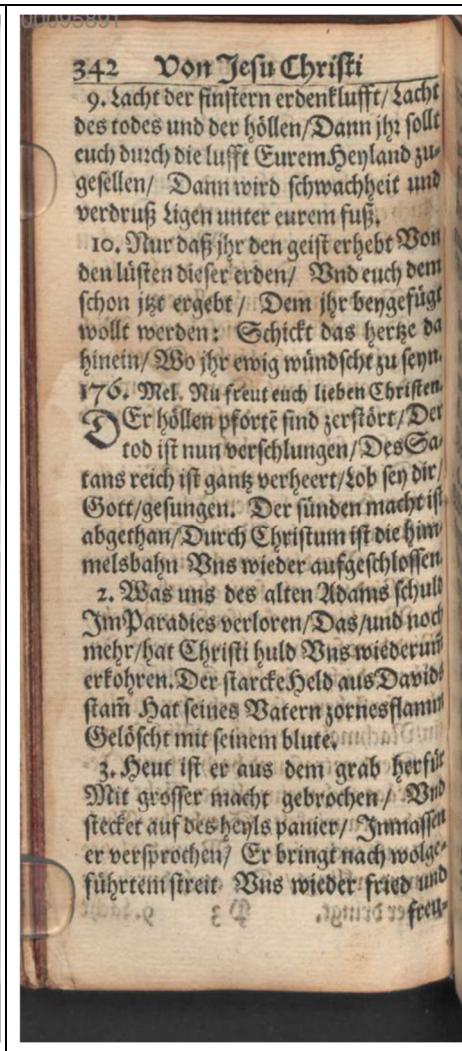 00095891
342 Von Jesu Christi
9. Lacht der finstern erdenklufft/ Lacht
des todes und der höllen/ Dann jhr sollt
euch durch die lufft Eurem Heyland zu-
gesellen/ Dann wird schwachheit und
verdruß Ligen unter eurem fuß.
10. Nur daß jhr den geist erhebt Von
den lüsten dieser erden/ Vnd euch dem
schon jtzt ergebt/ Dem jhr beygefügt
wollt werden: Schickt das hertze da
hinein/ Wo jhr ewig wündscht zu seyn.
176. Mel. Nu freut euch lieben Christen.
DEr höllen pfortē sind zerstört/ Der
tod ist nun verschlungen/ Des Sa-
tans reich ist gantz verheert/ Lob sey dir/
Gott/ gesungen. Der sünden macht ist
abgethan/ Durch Christum ist die him-
melsbahn Vns wieder aufgeschlossen
2. Was uns des alten Adams schuld
Im Paradies verloren/ Das/ und noch
mehr/ hat Christi huld Vns wiederum̄
erkohren. Der starcke Held aus Davids
stam̄ Hat seines Vatern zornesflamm
Gelöscht mit seinem blute.
3. Heut ist er aus dem grab herfür
Mit grosser macht gebrochen/ Vnd
stecket auf des heyls panier/ Inmassen
er versprochen/ Er bringt nach wolge-
führtem streit Vns wieder fried und
freu-